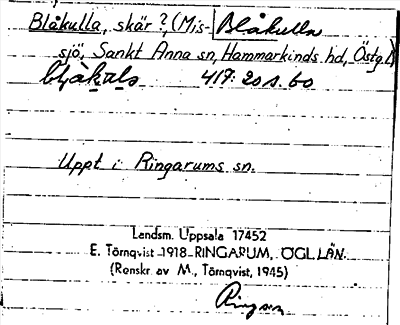 Blåkulla, skär?, (Mis- Blåkulla
sjö, Sankt Anna sn, Hammarkinds hd, Östg.)
417: 20 s. 60
Uppt i Ringarums sn.
Landsm. Uppsala 17452
E. Törnqvist 1918 RINGARUM, ÖGL. LÄN.
(Renskr. av M. Törnqvist, 1945)